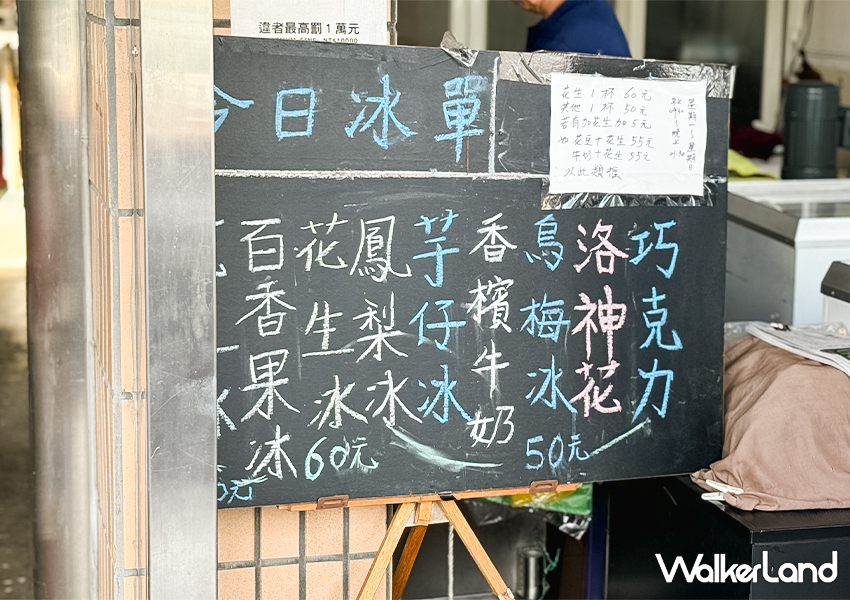 違者最高罰1萬元
今日冰單
花生1杯 60元
其他1杯 50元
若有加花生加5元
如 花豆+花生 55元
牛奶+花生 55元
以此類推
星期一~星期日
巧克力
洛神花
烏梅冰
50元
香檳牛奶
芋仔冰
鳳梨冰
花生冰
60元
百香果冰
元
WALKERLAND